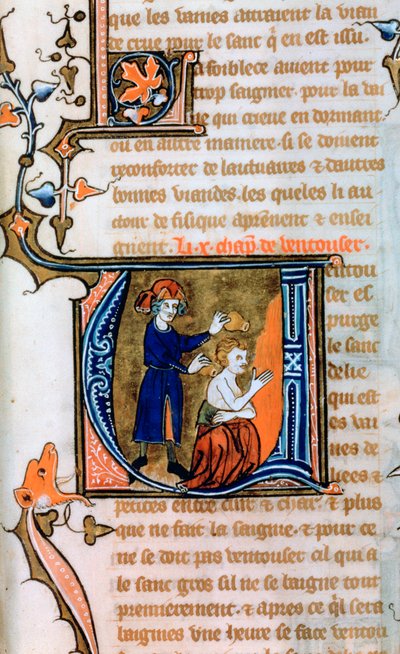 que les vaines atraient la vian
de crue pour le sanc q̃ en est issu.
a foiblece auient pour
trop saigner. pour la vai
ne qui crieue en dormant
ou en autre maniere. si se doiuent
reconforter de laituaires & dautres
bonnes viandes. les queles li au
ctour de fisique aprẽnent & ensei
gnent. Li .x. chap̃. de ventouser.
Ventou
ser es
purge
le sanc
delie
qui est
es vai
nes de
&
petites entre cuir & char. & plus
que ne fait la saignie. & pour ce
ne se doit pas ventouser cil qui a
le sanc gros sil ne se baigne tout
premierement. & apres ce q̃l sera
baignies vne heure se face ventou